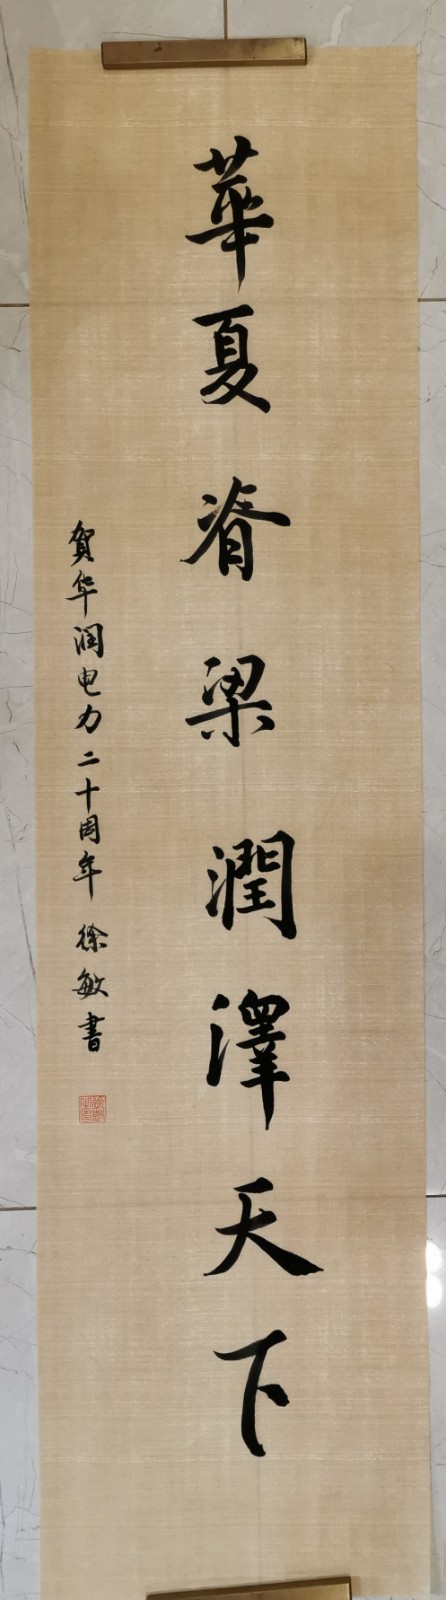 華夏脊梁潤澤天下
贺华润电力二十周年 徐敏書